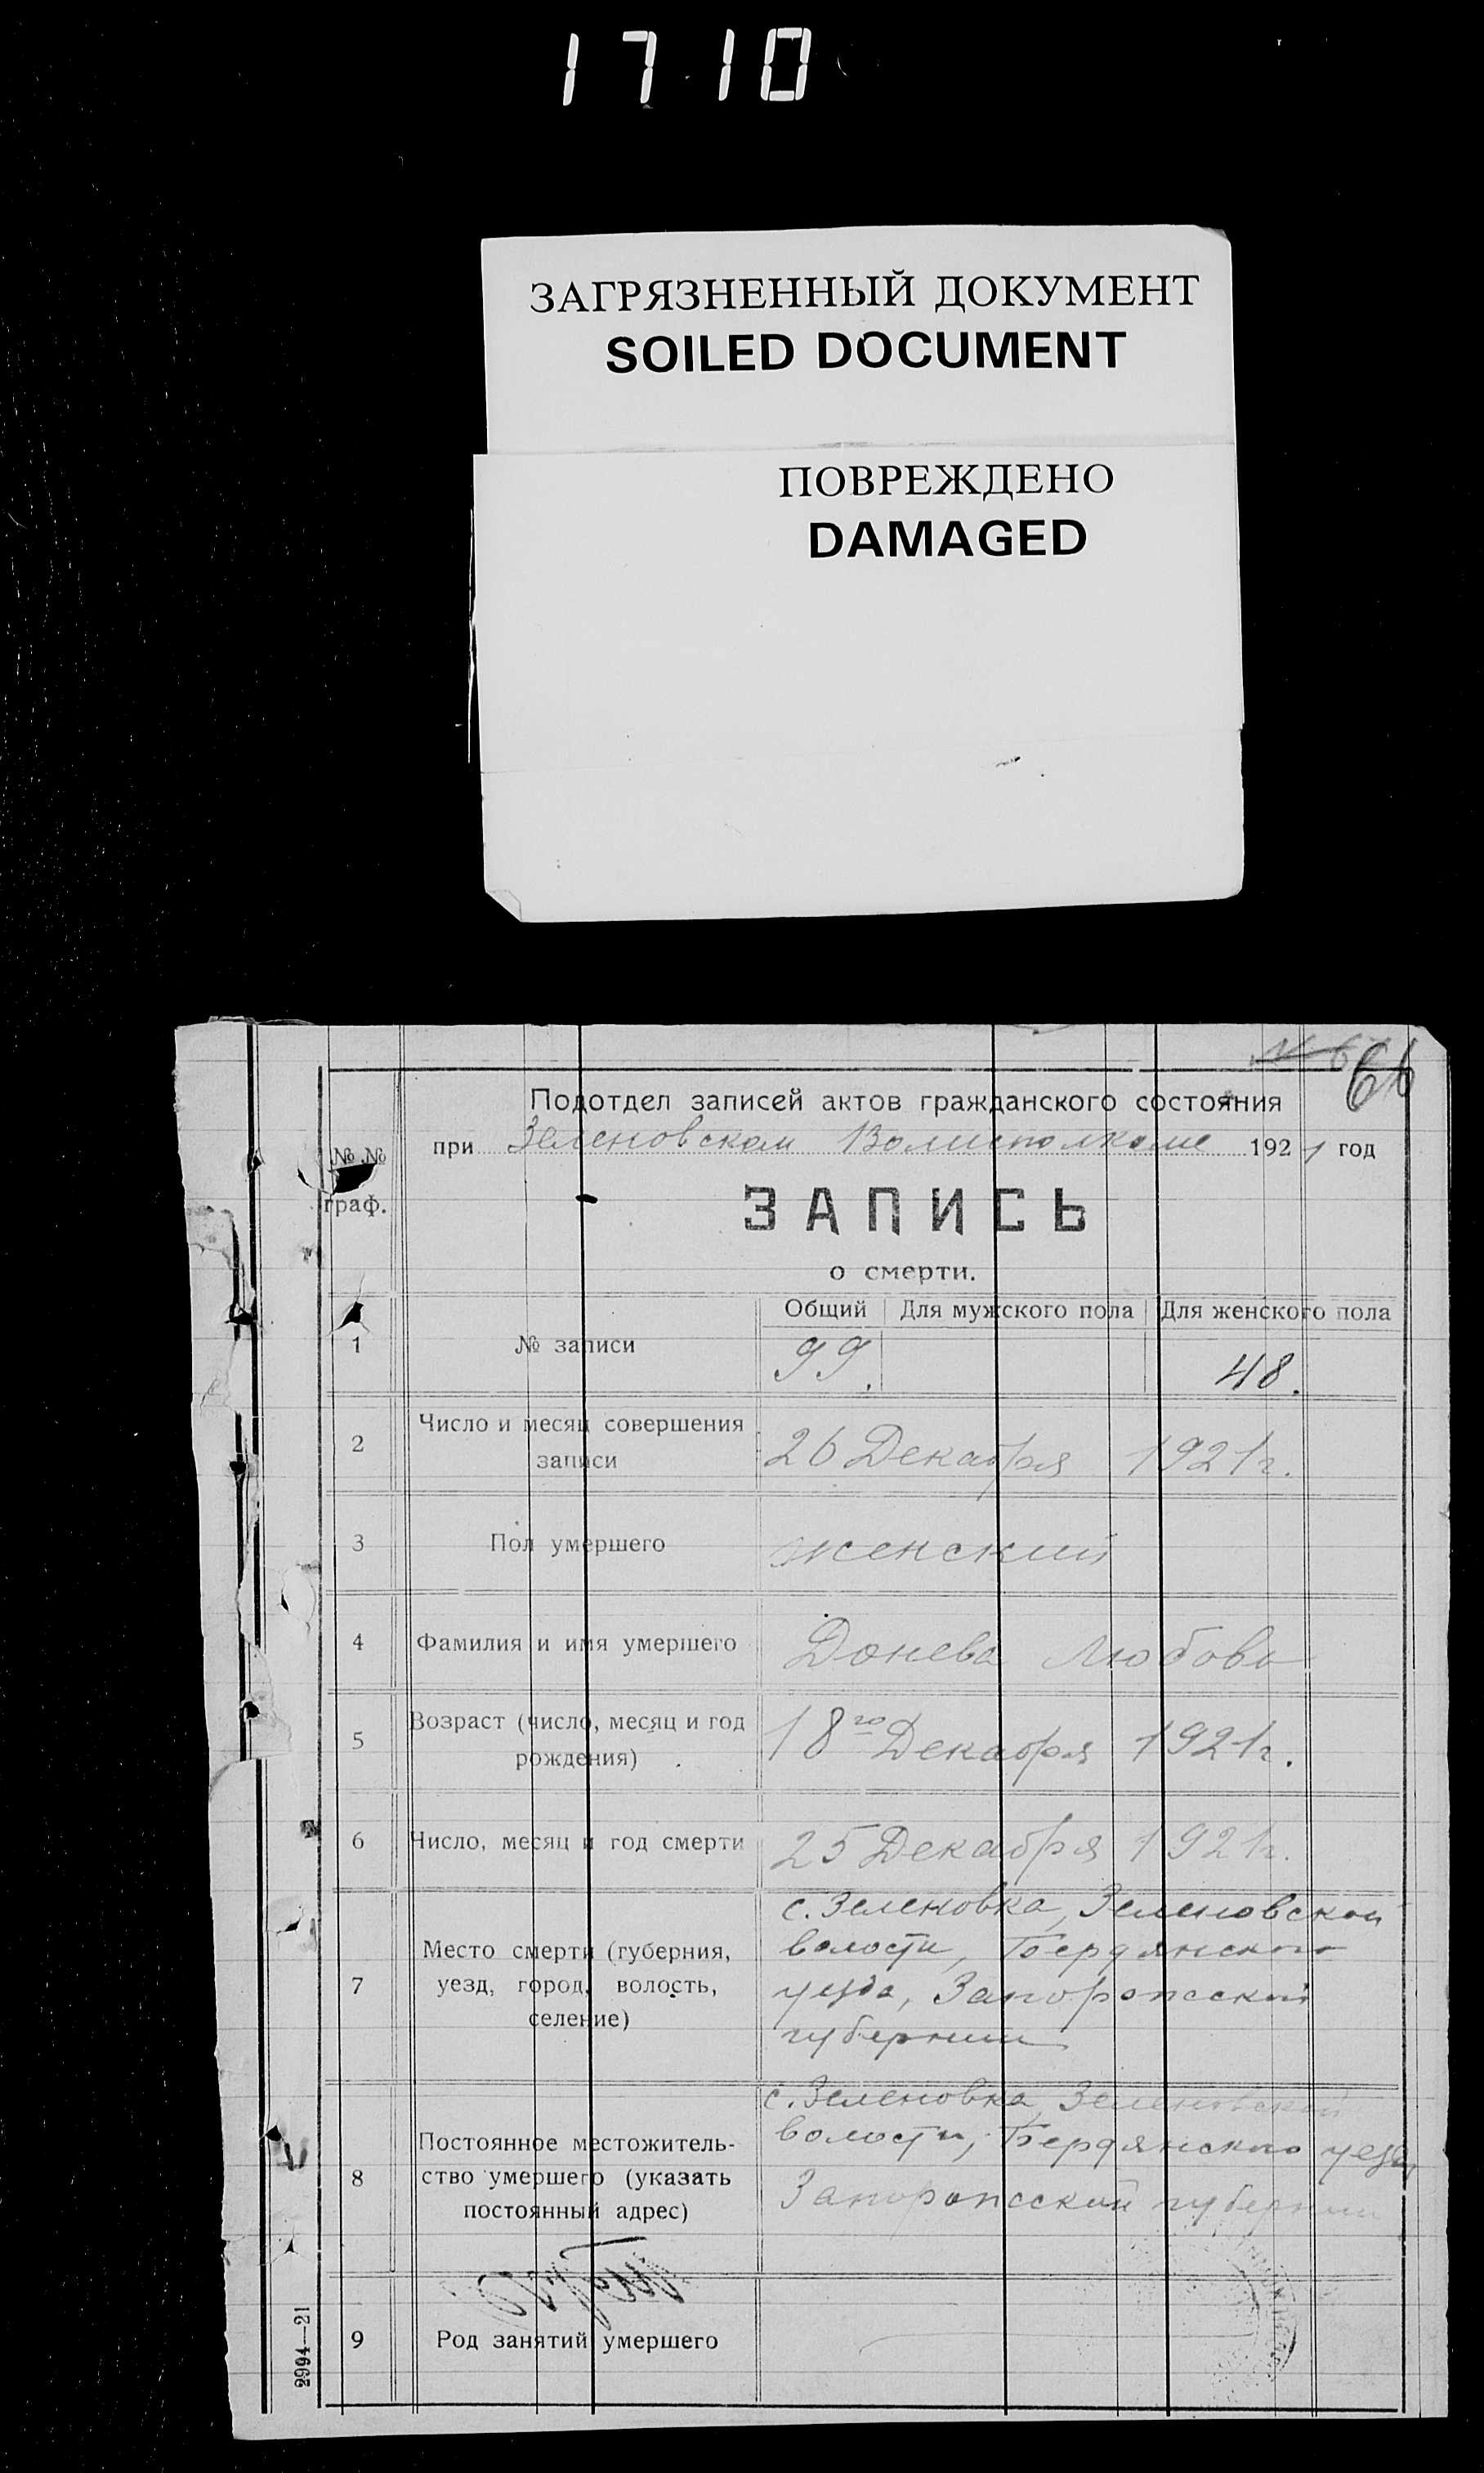 1710
ЗАГРЯЗНЕННЫЙ ДОКУМЕНТ
SOILED DOCUMENT
ПОВРЕЖДЕНО
DAMAGED
66
Подотдел записей актов гражданского состояния
при Зеленовском Волисполкоме 1921 год
№ №
граф.
ЗАПИСЬ
о смерти.
Общий Для мужского пола Для женского пола
1 № записи 99. 48.
2 Число и месяц совершения
записи 26 Декабря 1921 г.
3 Пол умершего женский
4 Фамилия и имя умершего Донева Любовь
5 Возраст (число, месяц и год
рождения) 18го Декабря 1921 г.
6 Число, месяц и год смерти 25 Декабря 1921 г.
7 Место смерти (губерния,
уезд, город, волость,
селение)
с. Зеленовка, Зеленовской
волости, Бердянского
уезда, Запорожской
губернии
8 Постоянное местожитель-
ство умершего (указать
постоянный адрес)
с. Зеленовка, Зеленовской
волости, Бердянского уезда
Запорожской губернии
9 Род занятий умершего
2994—21